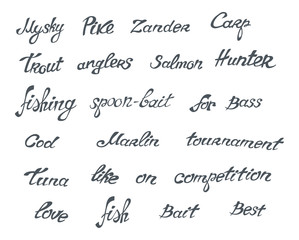 Mysky Pike Zander Carp
Trout anglers Salmon Hunter
fishing spoon-bait for Bass
Cod Marlin tournament
Tuna like on competition
love fish Bait Best